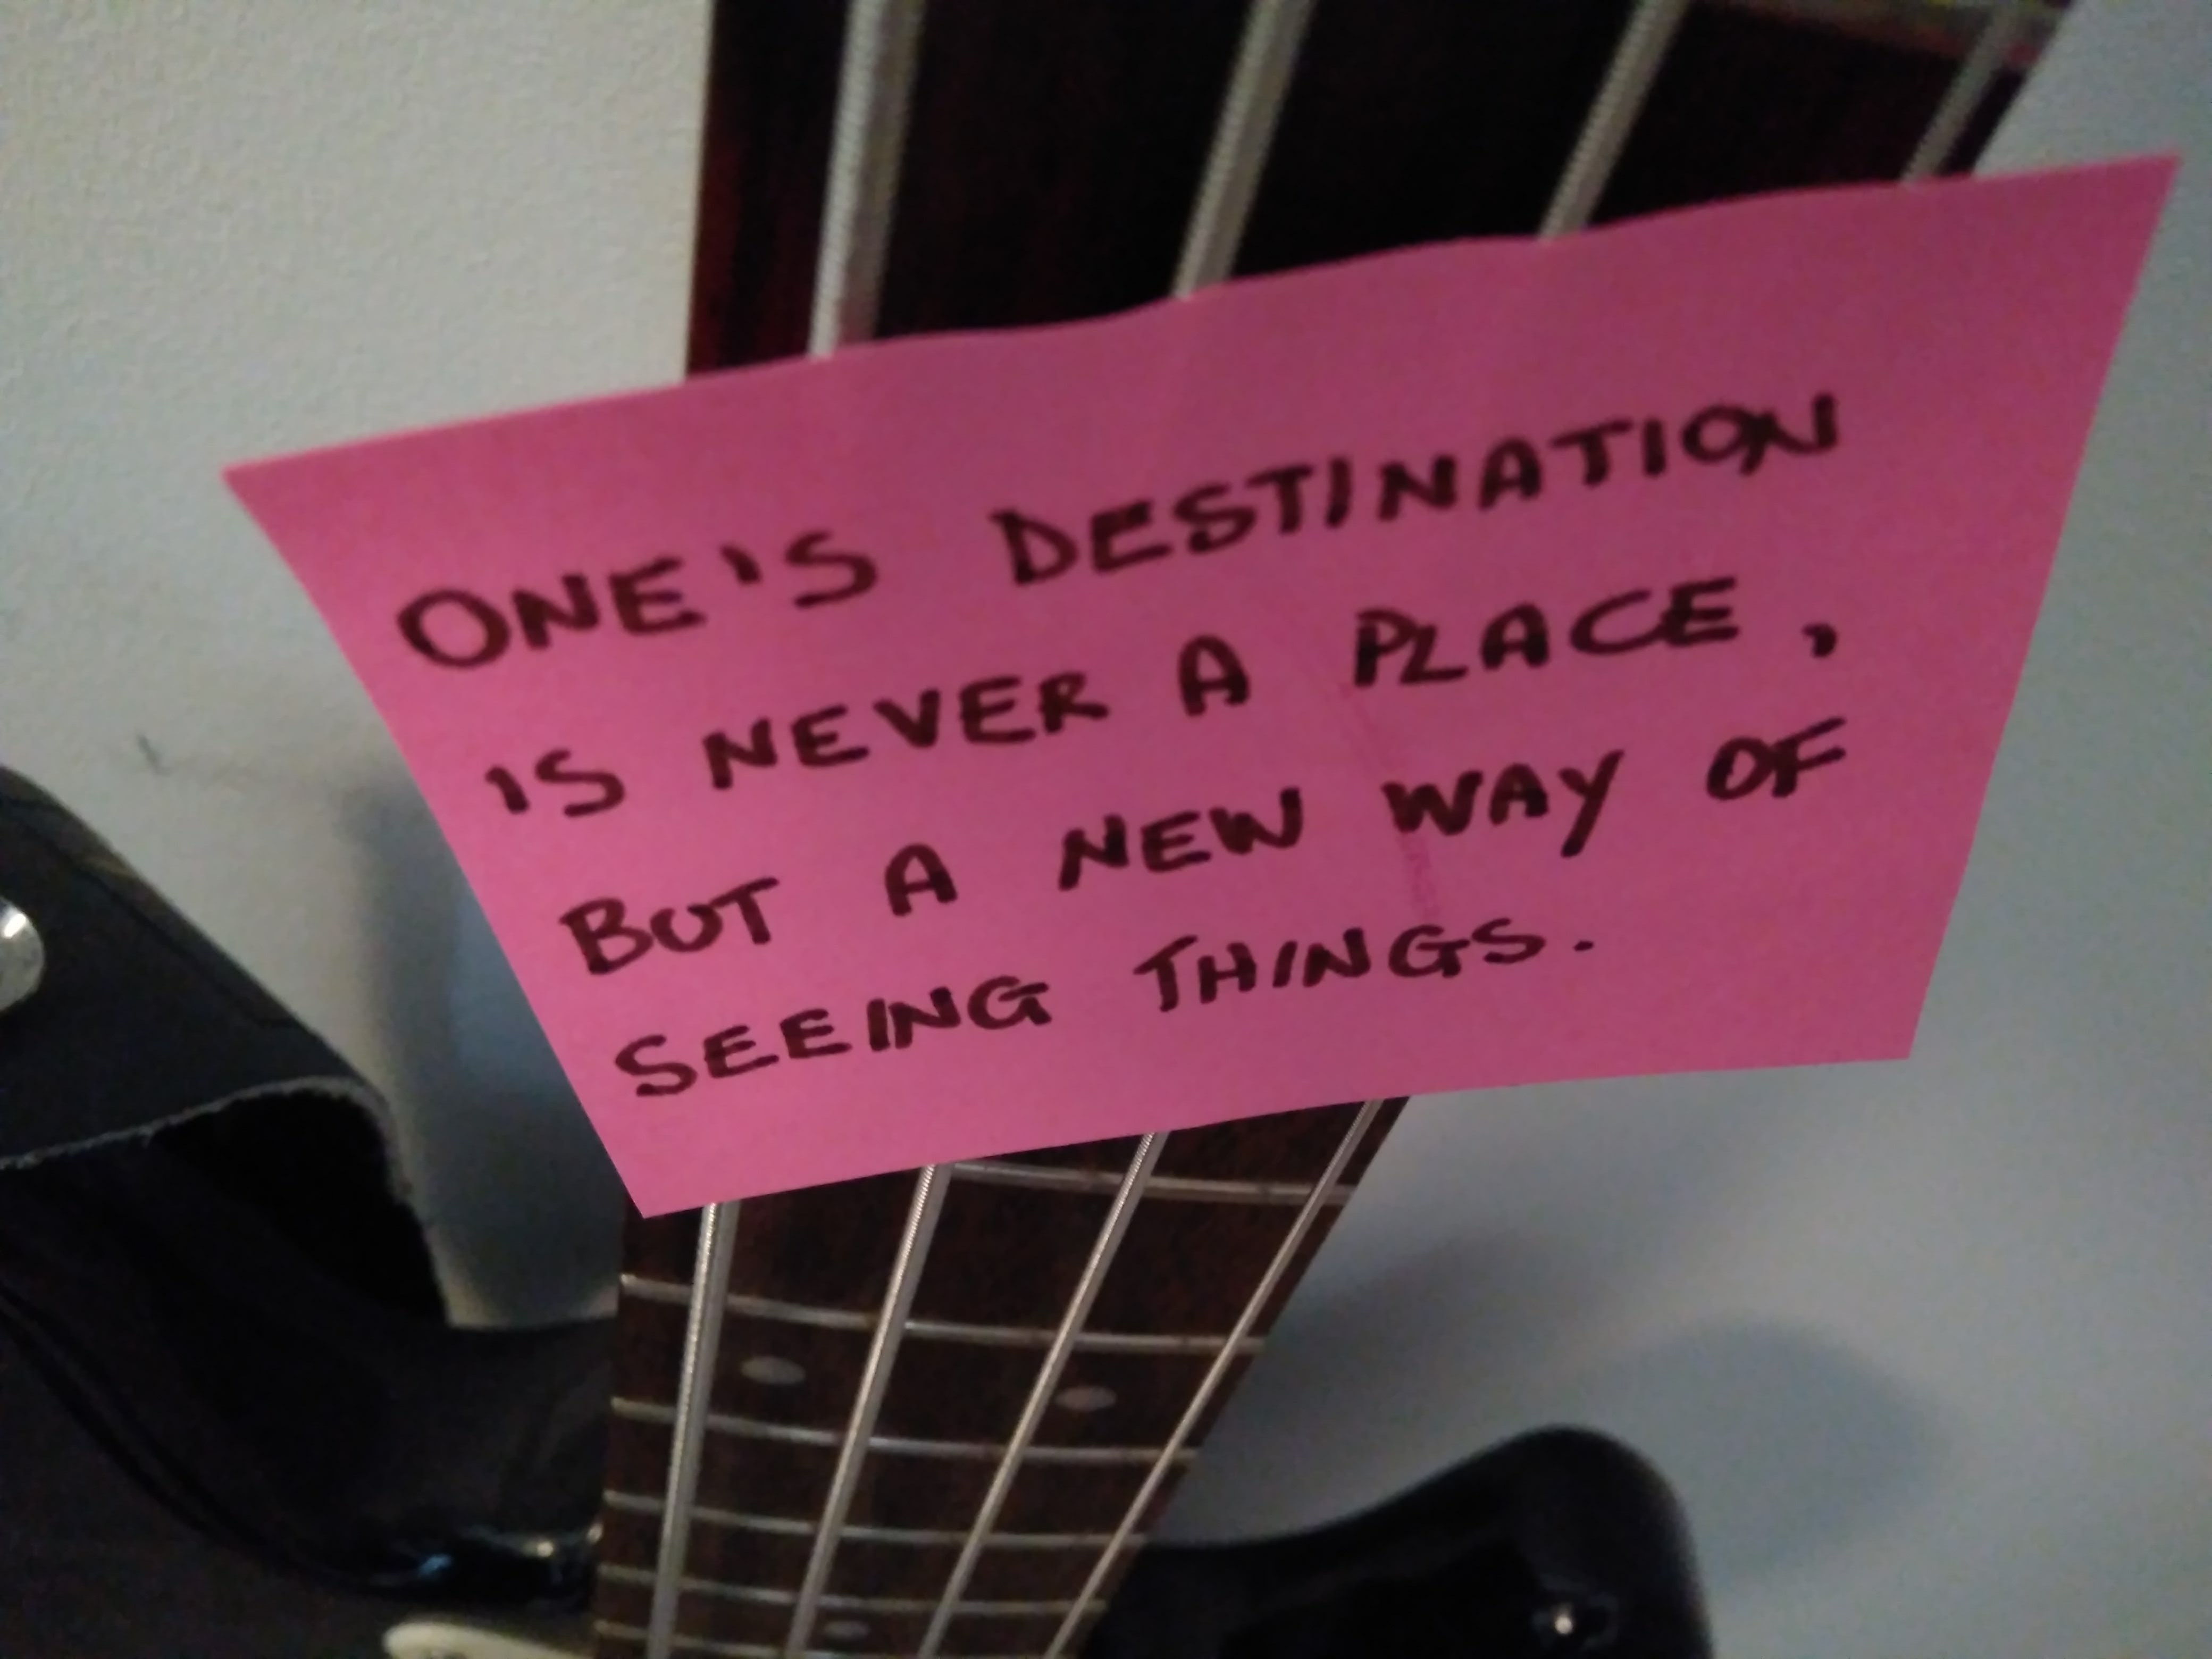 ONE'S DESTINATION
IS NEVER A PLACE,
BUT A NEW WAY OF
SEEING THINGS.